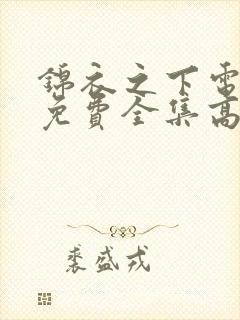 錦衣之下電
免費全集高
裘盛戎